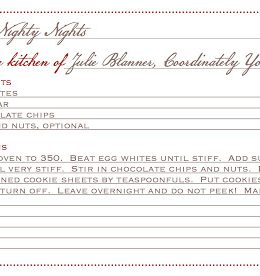 Nighty Nights
kitchen of Julie Blanner, Coordinately Yo
TS
TES
AR
LATE CHIPS
D NUTS, OPTIONAL
S
OVEN TO 350. BEAT EGG WHITES UNTIL STIFF. ADD SU
L VERY STIFF. STIR IN CHOCOLATE CHIPS AND NUTS.
NED COOKIE SHEETS BY TEASPOONFULS. PUT COOKIES
TURN OFF. LEAVE OVERNIGHT AND DO NOT PEEK! MA